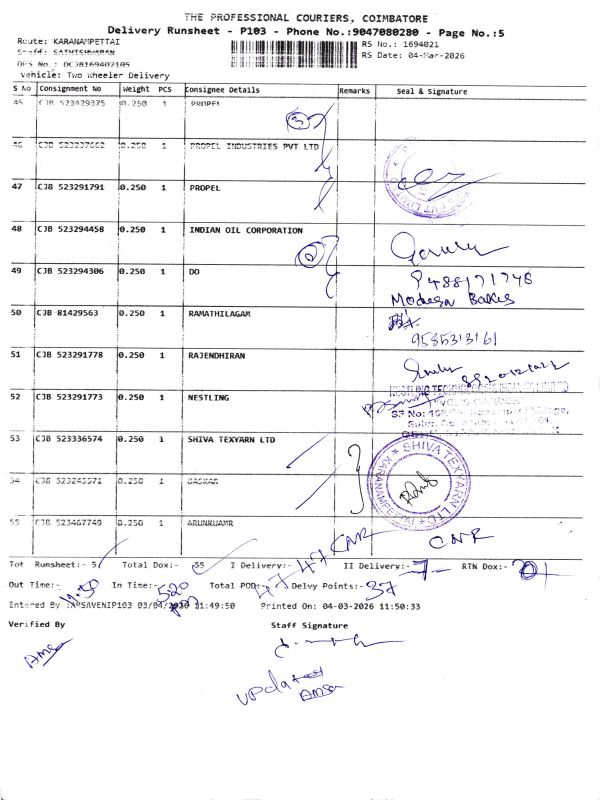 THE PROFESSIONAL COURIERS, COIMBATORE
Delivery Runsheet - P103 - Phone No.:9047080280 - Page No.:5
Route: KARANAMPETTAI
RS No.: 1694021
RS Date: 04-Mar-2026
Vehicle: Two Wheeler Delivery
S No Consignment No Weight PCS Consignee Details Remarks Seal & Signature
45 CJB 523429375 0.250 1 PROPEL
46 CJB 523237662 0.250 1 PROPEL INDUSTRIES PVT LTD
47 CJB 523291791 0.250 1 PROPEL
48 CJB 523294458 0.250 1 INDIAN OIL CORPORATION
49 CJB 523294306 0.250 1 DO
9488171748
Modern Bakes
50 CJB 81429563 0.250 1 RAMATHILAGAM
9585313161
51 CJB 523291778 0.250 1 RAJENDHIRAN
52 CJB 523291773 0.250 1 NESTLING
53 CJB 523336574 0.250 1 SHIVA TEXYARN LTD
SHIVA TEXYARN LTD
KARANAMPETTAI
54 CJB 523245571 0.250 1 BASKAR
55 CJB 523467749 0.250 1 ARUNKUAMR
CNR
Tot Runsheet:- 5 Total Dox:- 55 I Delivery:- 47 47 II Delivery:- 7 RTN Dox:-
Out Time:- 11.50 In Time:- 5.20 pm Total POD:- Delvy Points:- 37
Entered By 03/04/2026 11:49:50 Printed On: 04-03-2026 11:50:33
Verified By Staff Signature